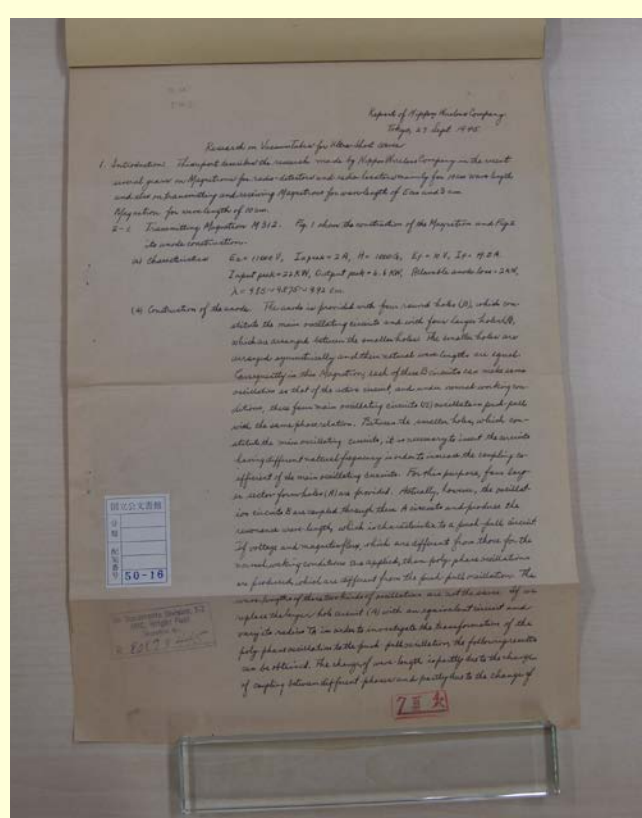 Report of Nippon Wireless Company
Tokyo, 27 Sept 1945
Research on Vacuumtubes for Ultra-Short Waves
1. Introduction. This report describes the research made by Nippon Wireless Company in the recent
several years on Magnetrons for radio-detectors and radio locators mainly for 10 cm wave length
and also on transmitting and receiving Magnetrons for wave length of 5 cm and 3 cm
Magnetron for wave length of 10 cm.
2-1 Transmitting Magnetron M312. Fig. 1 shows the construction of the Magnetron and Fig 2
its anode construction.
(a) Characteristics
Input peak = 22 KW, Output peak = 6.6 KW, Allowable anode loss = 2 KW,
(b) Construction of the anode. The anode is provided with four round holes (B), which con-
stitute the main oscillating circuits and with four larger holes (A),
which are arranged between the smaller holes. The smaller holes are
arranged symmetrically and their natural wave lengths are equal.
Consequently in this Magnetron, each of these B circuits can make same
oscillation as that of the active circuit, and under normal working con-
ditions, these four main oscillating circuits (B) oscillate in push-pull
with the same phase relation. Between the smaller holes, which con-
stitute the main oscillating circuits, it is necessary to insert the circuits
having different natural frequency in order to increase the coupling co-
efficient of the main oscillating circuits. For this purpose, four larg-
er sector form holes (A) are provided. Actually, however, the oscillat-
ion circuits B are coupled through these A circuits and produce the
resonance wave-length, which is characteristic to a push-pull circuit.
If voltage and magnetic flux, which are different from those for the
normal working conditions are applied, then poly-phase oscillations
are produced, which are different from the push-pull oscillation. The
wave-lengths of these two kinds of oscillation are not the same. If we
replace the larger hole circuit (A) with an equivalent circuit and
vary its radius in order to investigate the transformation of the
poly-phase oscillation to the push-pull oscillation, the following results
can be obtained. The change of wave-length is partly due to the change
of coupling between different phases and partly due to the change of
国立公文書館
分類
配架番号
50-16